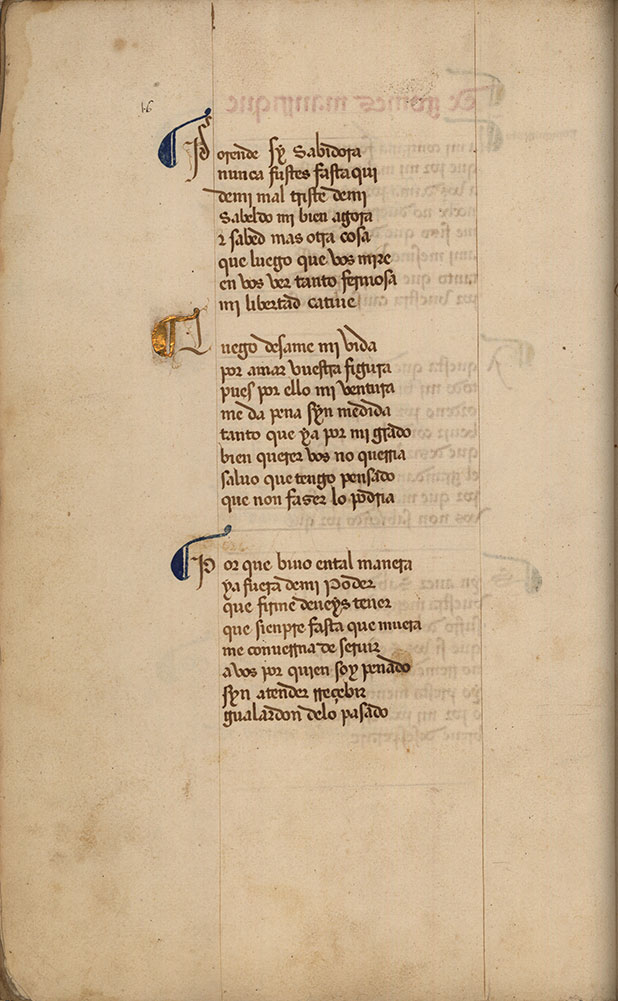 Porende sy Sabidora
nunca fustes fasta qui
demi mal triste demi
Sabeldo mi bien agora
z sabed mas otra cosa
que luego que vos mire
en vos ver tanto fermosa
mi libertad catiue
Luego desame mi vida
por amar vuestra figura
pues por ello mi ventura
me da pena syn medida
tanto que ya por mi grado
bien querer vos no querria
saluo que tengo pensado
que non faser lo podria
Por que biuo ental manera
ya fuera demi Poder
que firme deueys tener
que sienpre fasta que muera
me conuerna de seruir
avos por quien soy penado
syn atender rreçebir
gualardon delo pasado